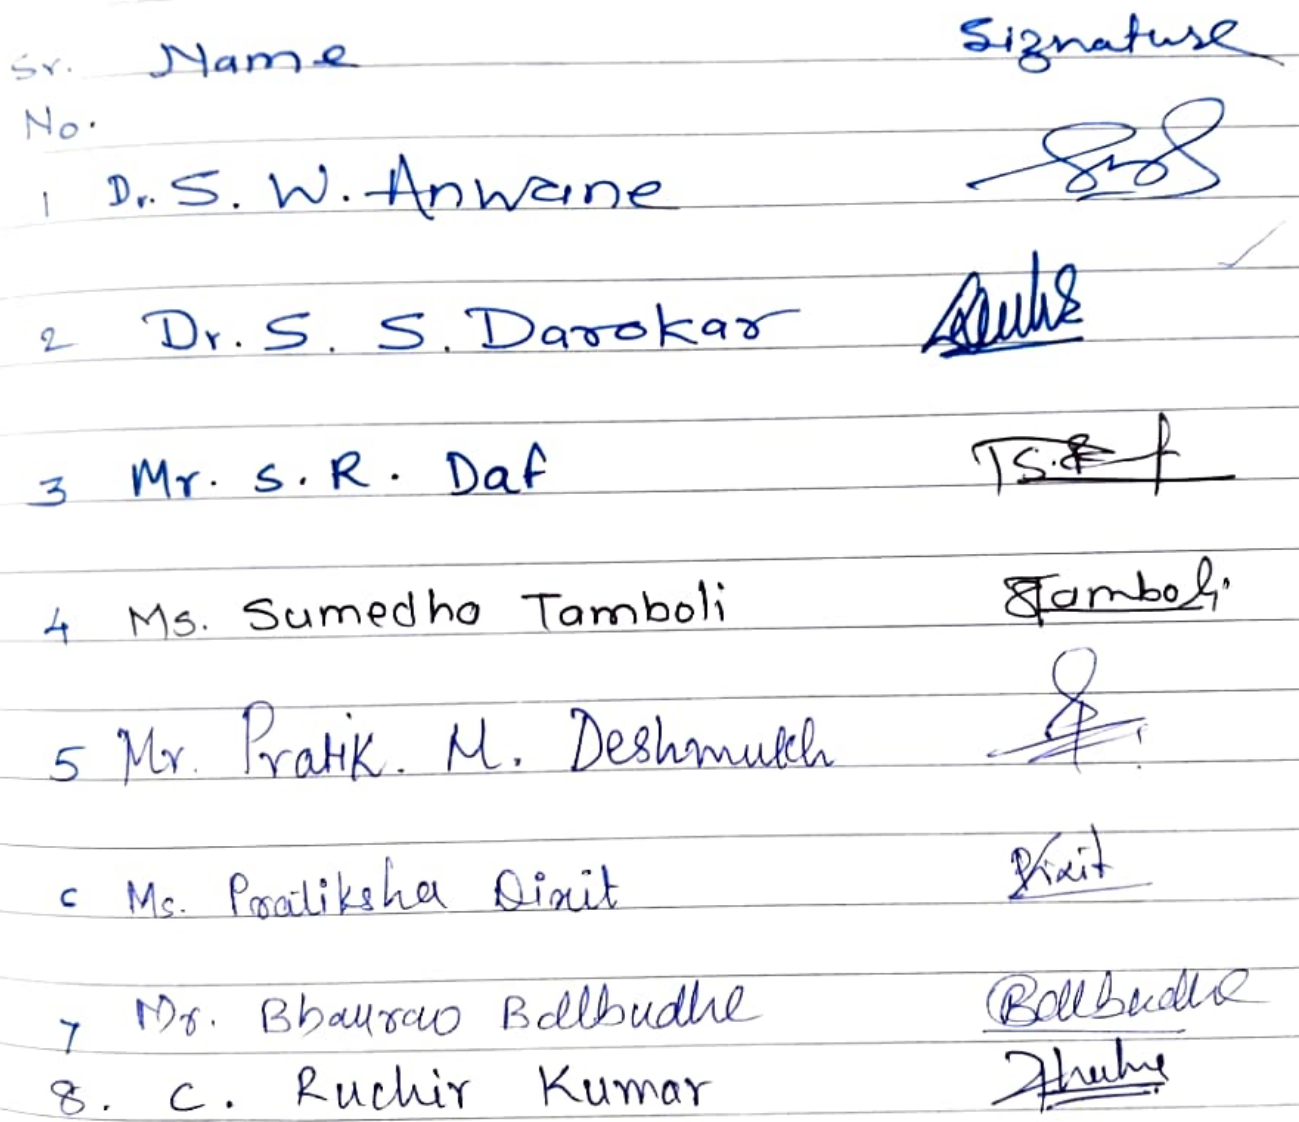 Sr. Name Signature
No.
1 Dr. S. W. Anwane
2 Dr. S. S. Darokar
3 Mr. S. R. Daf
4 Ms. Sumedha Tamboli STamboli
5 Mr. Pratik. M. Deshmukh
6 Ms. Pratiksha Dixit Dixit
7 Mr. Bhaurao Ballbudhe Ballbudhe
8. C. Ruchir Kumar